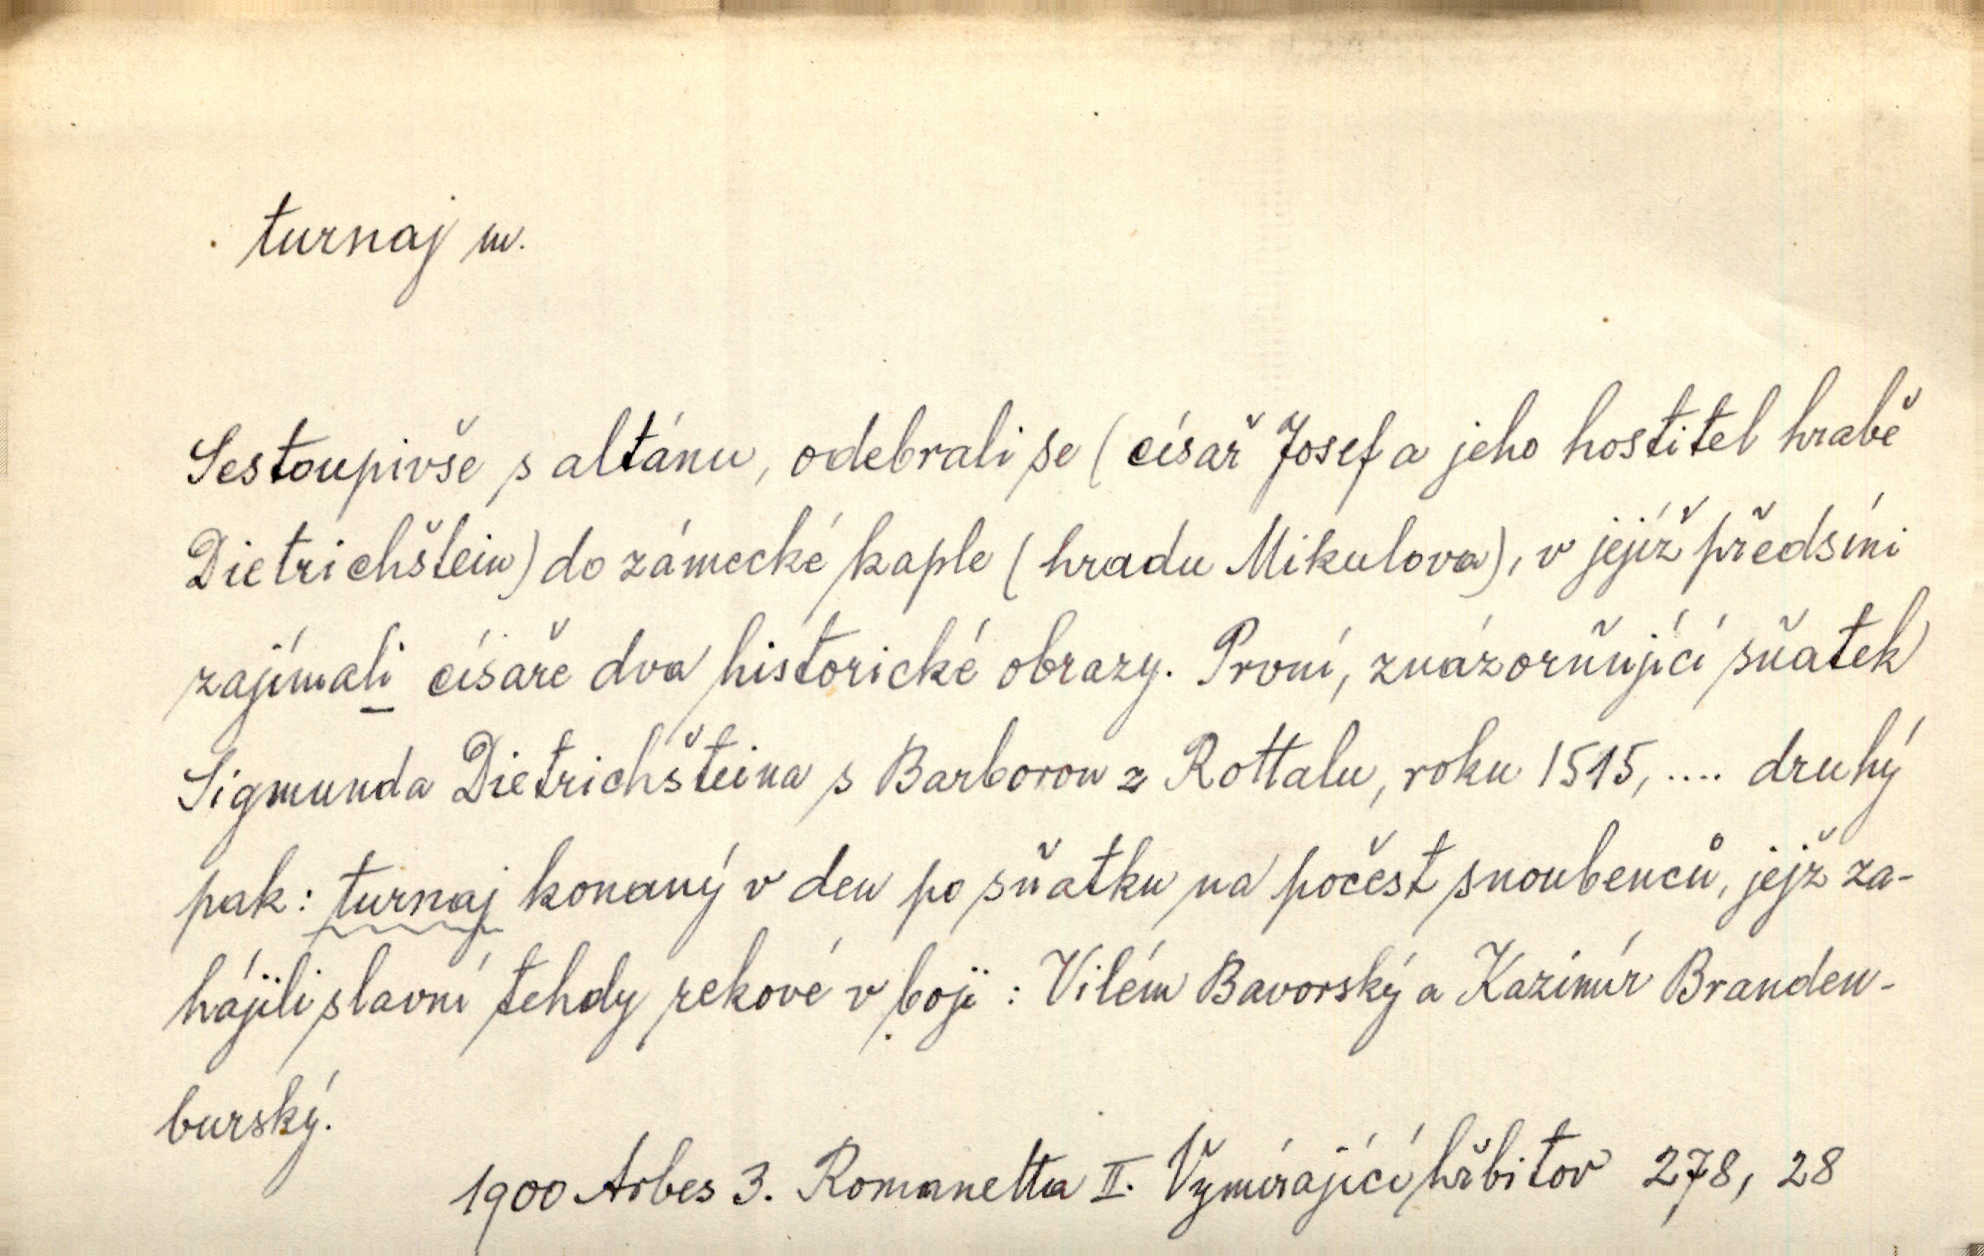 turnaj m.
Sestoupivše s altánu, odebrali se (císař Josef a jeho hostitel hrabě
Dietrichštein) do zámecké kaple (hradu Mikulova), v jejíž předsíni
zajímali císaře dva historické obrazy. První, znázorňující sňatek
Sigmunda Dietrichšteina s Barborou z Rottalu, roku 1515, .... druhý
pak: turnaj konaný v den po sňatku na počest snoubenců, jejž za-
hájili slavní tehdy rekové v boji : Vilém Bavorský a Kazimír Branden-
burský.
1900 Arbes 3. Romanetta II. Vymírající hřbitov 278, 28